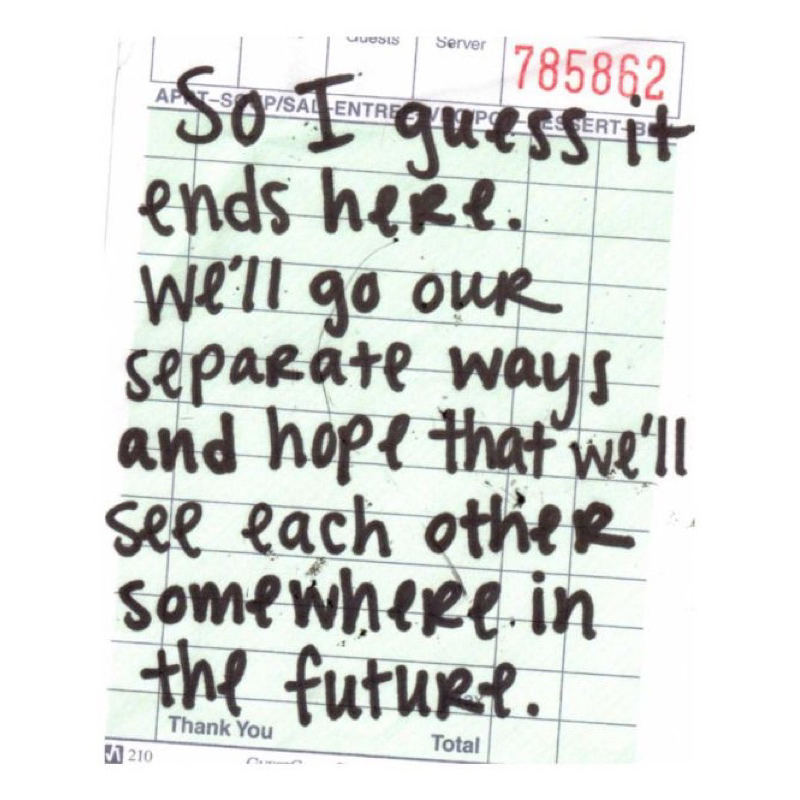 Guests Server 785862
So I guess it
ends here.
We'll go our
separate ways
and hope that we'll
see each other
somewhere in
the future.
Thank You
Total
210